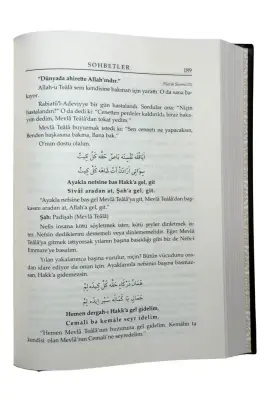 SOHBETLER
"Dünyada ahirette Allah'ındır."
Allah-u Teâlâ seni kendisine bakman için yarattı. O da sana bakıyor.
Rabiatü'l-Adeviyye bir gün hastalandı. Sordular ona: "Niçin
hastalandın?" O da dedi ki: "Cennetten perdeler kaldırıldı, biraz bakayın dedim, Mevlâ Teâlâ'dan tokat yedim."
Mevlâ Teâlâ buyurmak istedi ki: "Sen cenneti ne yapacaksın,
Benden başkasına bakma, Bana bak."
O'nun dostu olalım.
Ayakla nefsine bas Hakk'a gel, git
Sivâi aradan at, Şah'a gel, git.
"Ayakla nefsine bas gel Mevlâ Teâlâ'ya git, Mevlâ Teâlâ'dan başkasını aradan at, Allah'a gel, git."
Şah: Padişah (Mevlâ Teâlâ)
Nefis insana kötü söyletmek ister, kötü şeyler dinletmek ister.
Nefsin dediklerini dinlememeli veya dinlememelidir. Eğer Mevlâ
Teâlâ'ya gitmek istiyorsak yılanın başına basıldığı gibi biz de Nefs-i
Emmare'ye basalım.
Yılan yakalanınca başına vurulur, niçin? Bütün vücuduna onu
idare ediyor da onun için. Ayaklarınla nefsinin başına basman
Hakk'a gidelim.
Hemen dergah-ı Hakk'a gel gidelim,
Cemali ba kemâle seyr idelim.
"Hemen Mevlâ Teâlâ'nın huzuruna gel gidelim, Kemâlat ta
kendisi olan Mevlâ'nın Cemalı'ne seyredelim."